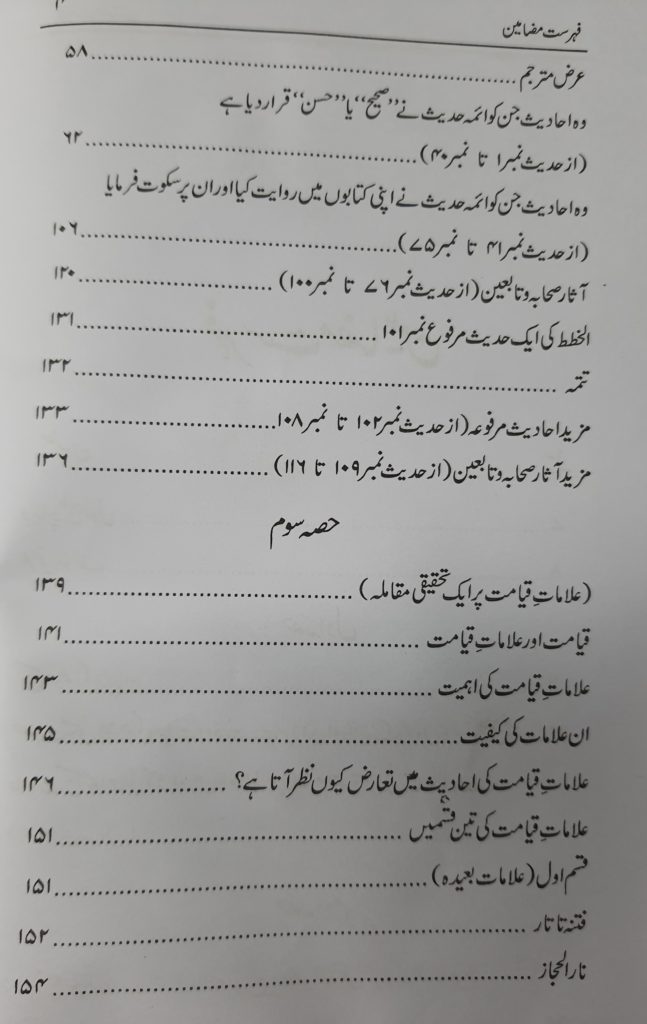 فہرست مضامین
عرض مترجم ........ ۵۸
وہ احادیث جن کو ائمہ حدیث نے ’’صحیح‘‘ یا ’’حسن‘‘ قرار دیا ہے
(از حدیث نمبر۱ تا نمبر۴۰) ........ ۶۲
وہ احادیث جن کو ائمہ حدیث نے اپنی کتابوں میں روایت کیا اور ان پر سکوت فرمایا
(از حدیث نمبر۴۱ تا نمبر۷۵) ........ ۱۰۶
آثار صحابہ و تابعین (از حدیث نمبر۷۶ تا نمبر۱۰۰) ........ ۱۲۰
الخطط کی ایک حدیث مرفوع نمبر۱۰۱ ........ ۱۳۱
تتمہ ........ ۱۳۲
مزید احادیث مرفوعہ (از حدیث نمبر۱۰۲ تا نمبر۱۰۸ ........ ۱۳۳
مزید آثار صحابہ و تابعین (از حدیث نمبر۱۰۹ تا ۱۱۶) ........ ۱۳۶
حصہ سوم
(علاماتِ قیامت پر ایک تحقیقی مقاملہ) ........ ۱۳۹
قیامت اور علاماتِ قیامت ........ ۱۴۱
علاماتِ قیامت کی اہمیت ........ ۱۴۳
ان علامات کی کیفیت ........ ۱۴۵
علاماتِ قیامت کی احادیث میں تعارض کیوں نظر آتا ہے؟ ........ ۱۴۶
علاماتِ قیامت کی تین قسمیں ........ ۱۵۱
قسم اول (علامات بعیدہ) ........ ۱۵۱
فتنہ تاتار ........ ۱۵۲
نار الحجاز ........ ۱۵۴